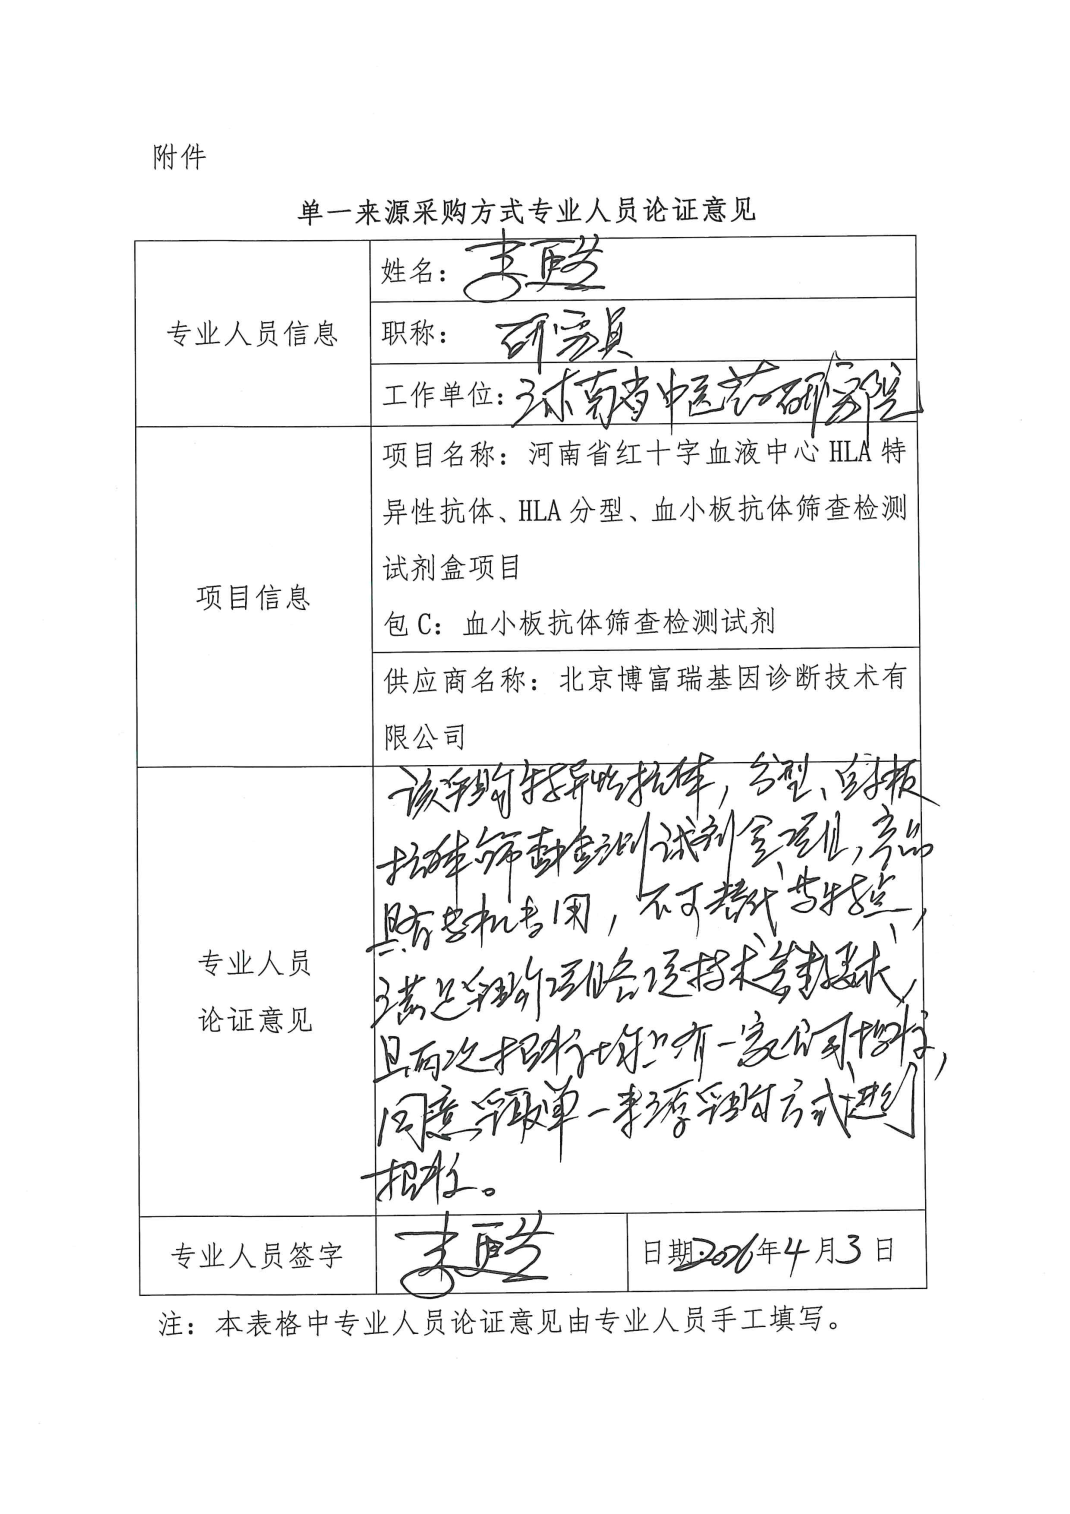 附件
单一来源采购方式专业人员论证意见
专业人员信息
姓名：李更生
职称：研究员
工作单位：河南省中医药研究院
项目信息
项目名称：河南省红十字血液中心 HLA 特
异性抗体、HLA 分型、血小板抗体筛查检测
试剂盒项目
包 C：血小板抗体筛查检测试剂
供应商名称：北京博富瑞基因诊断技术有
限公司
专业人员
论证意见
该采购特异性抗体，分型、血小板
抗体筛查检测试剂盒项目，产品
具有专机专用，不可替代等特点，
满足采购项目各项技术参数要求，
且两次招标均只有一家公司投标，
同意采取单一来源采购方式进行
招标。
专业人员签字
李更生
日期：2026年4月3日
注：本表格中专业人员论证意见由专业人员手工填写。